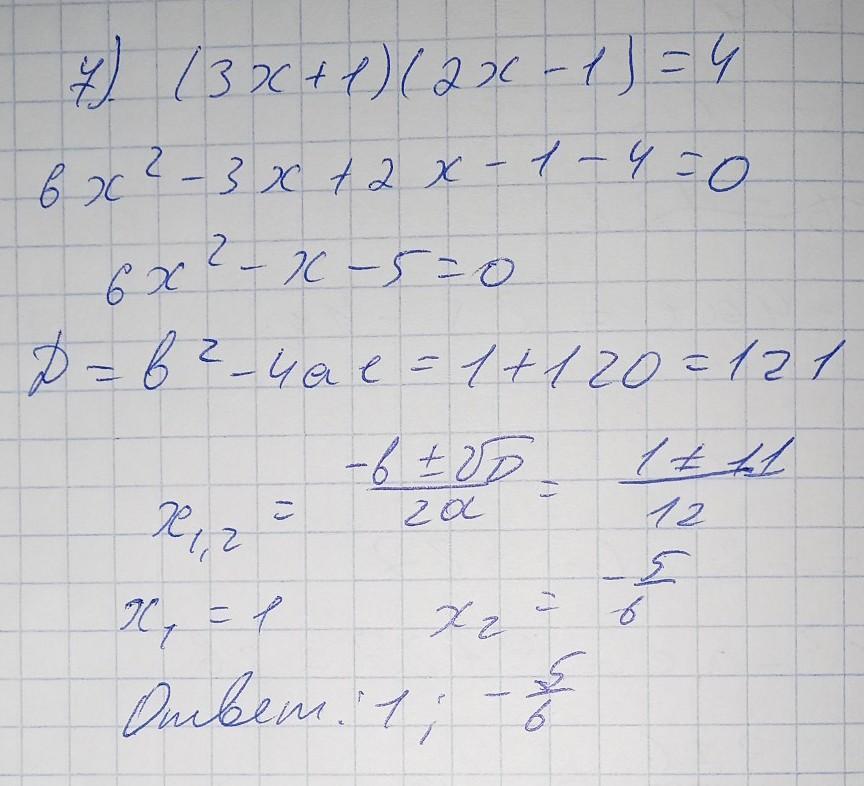 7) (3x+1)(2x-1)=4
6x²-3x+2x-1-4=0
6x²-x-5=0
D=b²-4ac=1+120=121
x₁,₂ = (-b±√D)/2a = (1±11)/12
x₁=1 x₂=-5/6
Ответ: 1; -5/6